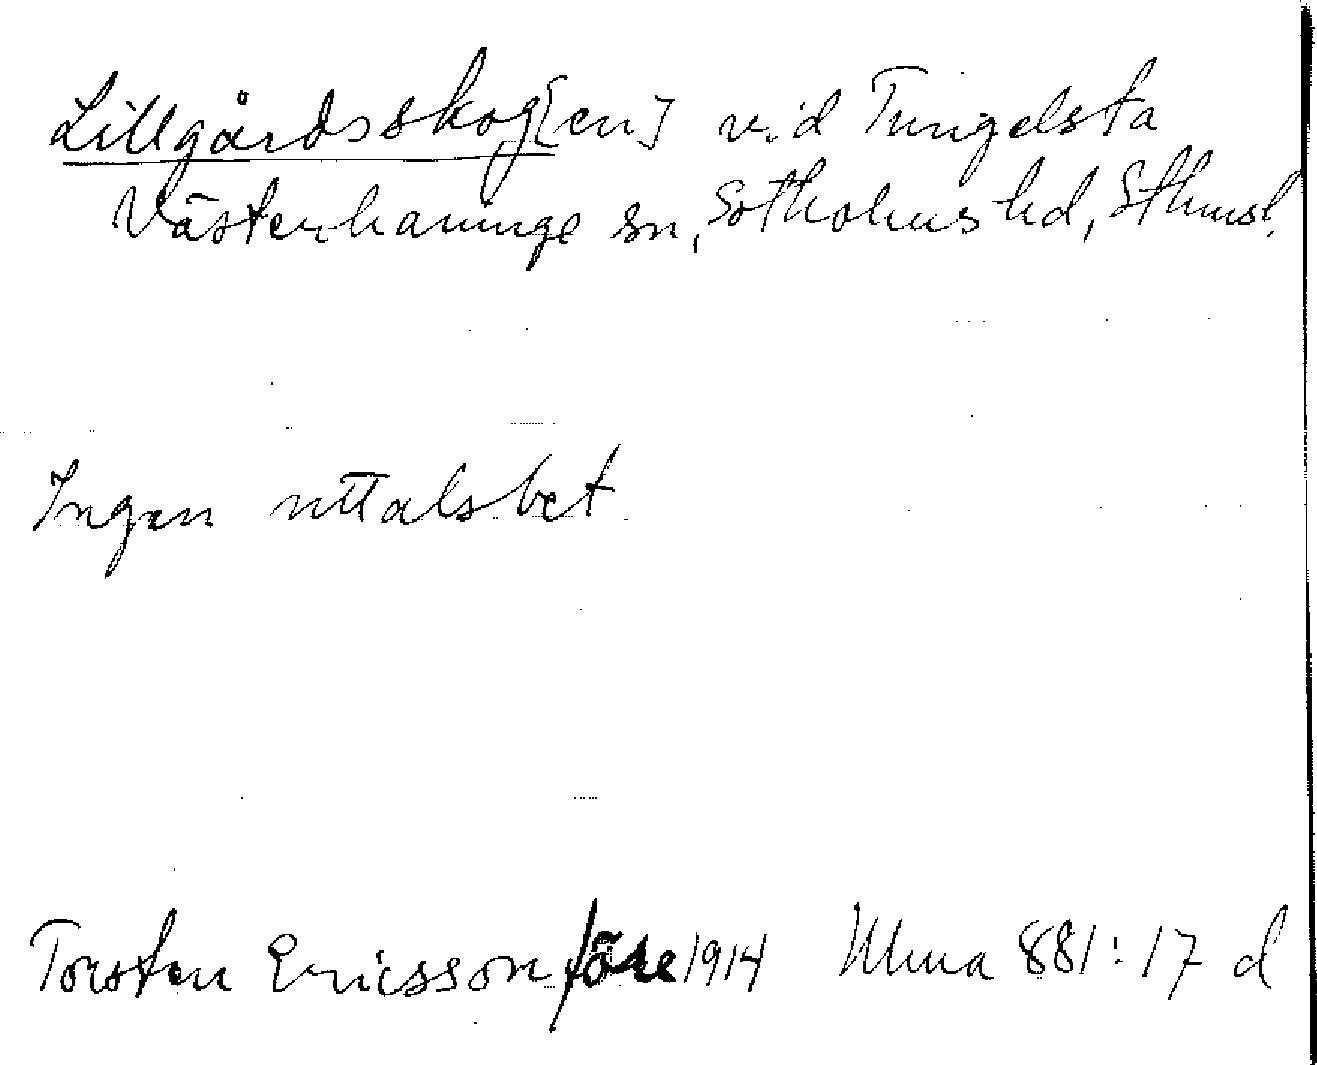 Lillgårdsskog[en] vid Tungelsta
Västerhaninge sn, Sotholms hd, Sthmsl.
Ingen uttalsbet
Torsten Ericsson före 1914 Ulma 881:17 d